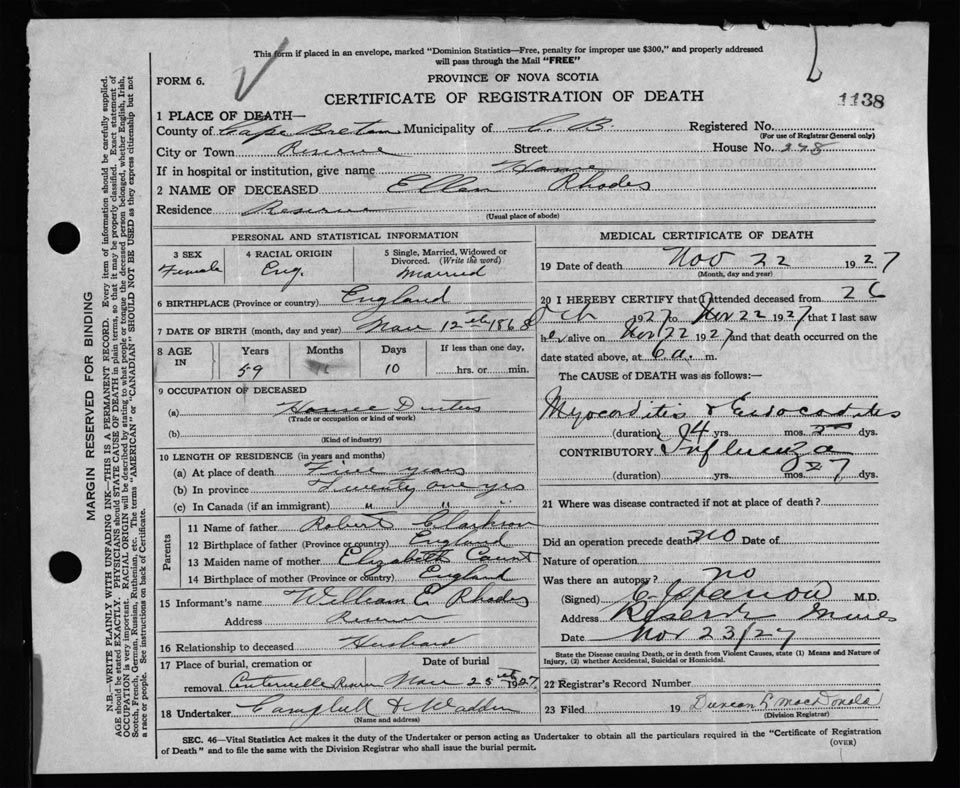 This form if placed in an envelope, marked "Dominion Statistics—Free, penalty for improper use $300," and properly addressed
will pass through the Mail "FREE"
FORM 6.
PROVINCE OF NOVA SCOTIA
CERTIFICATE OF REGISTRATION OF DEATH
1138
1 PLACE OF DEATH—
County of Cape Breton Municipality of C. B. Registered No.
(For use of Registrar General only)
City or Town Reserve Street House No. 298
If in hospital or institution, give name Home
2 NAME OF DECEASED Ellen Rhodes
Residence Reserve
(Usual place of abode)
PERSONAL AND STATISTICAL INFORMATION
3 SEX Female
4 RACIAL ORIGIN Eng.
5 Single, Married, Widowed or
Divorced. (Write the word)
Married
6 BIRTHPLACE (Province or country) England
7 DATE OF BIRTH (month, day and year) Nov 12th 1868
8 AGE IN
Years 59
Months
Days 10
If less than one day,
hrs. or min.
9 OCCUPATION OF DECEASED
(a) House Duties
(Trade or occupation or kind of work)
(b)
(Kind of industry)
10 LENGTH OF RESIDENCE (in years and months)
(a) At place of death Five years
(b) In province Twenty one yrs
(c) In Canada (if an immigrant) " " "
Parents
11 Name of father Robert Clarkson
12 Birthplace of father (Province or country) England
13 Maiden name of mother Elizabeth Court
14 Birthplace of mother (Province or country) England
15 Informant's name William E. Rhodes
Address Reserve
16 Relationship to deceased Husband
17 Place of burial, cremation or
Date of burial
removal Centerville Reserve Nov 25th 1927
18 Undertaker Campbell & Wadden
(Name and address)
MEDICAL CERTIFICATE OF DEATH
19 Date of death Nov 22 1927
(Month, day and year)
20 I HEREBY CERTIFY that I attended deceased from 26
Oct 1927 to Nov 22 1927 that I last saw
her alive on Nov 22 1927 and that death occurred on the
date stated above, at 6 a. m.
The CAUSE of DEATH was as follows:—
Myocarditis & Endocarditis
(duration) 4 yrs. mos. dys.
CONTRIBUTORY Influenza
(duration) yrs. mos. 7 dys.
21 Where was disease contracted if not at place of death?
Did an operation precede death? no Date of
Nature of operation
Was there an autopsy? no
(Signed) M.D.
Address Reserve Mines
Date Nov 23/27
State the Disease causing Death, or in death from Violent Causes, state (1) Means and Nature of
Injury, (2) whether Accidental, Suicidal or Homicidal.
22 Registrar's Record Number
23 Filed 19 Duncan L MacDonald
(Division Registrar)
SEC. 46—Vital Statistics Act makes it the duty of the Undertaker or person acting as Undertaker to obtain all the particulars required in the "Certificate of Registration
of Death" and to file the same with the Division Registrar who shall issue the burial permit.
(OVER)
MARGIN RESERVED FOR BINDING
N.B.—WRITE PLAINLY WITH UNFADING INK—THIS IS A PERMANENT RECORD. Every item of information should be carefully supplied.
AGE should be stated EXACTLY. PHYSICIANS should STATE CAUSE OF DEATH in plain terms, so that it may be properly classified. Exact statement of
OCCUPATION is very important. RACIAL ORIGIN will be described by stating to what people or tongue the deceased person belonged, whether English, Irish,
Scotch, French, German, Russian, Ruthenian, etc. The terms "AMERICAN" or "CANADIAN" SHOULD NOT BE USED as they express citizenship but not
a race or people. See instructions on back of Certificate.